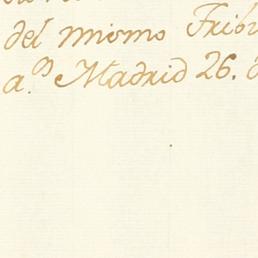 del mismo Tribu
a.os Madrid 26. d